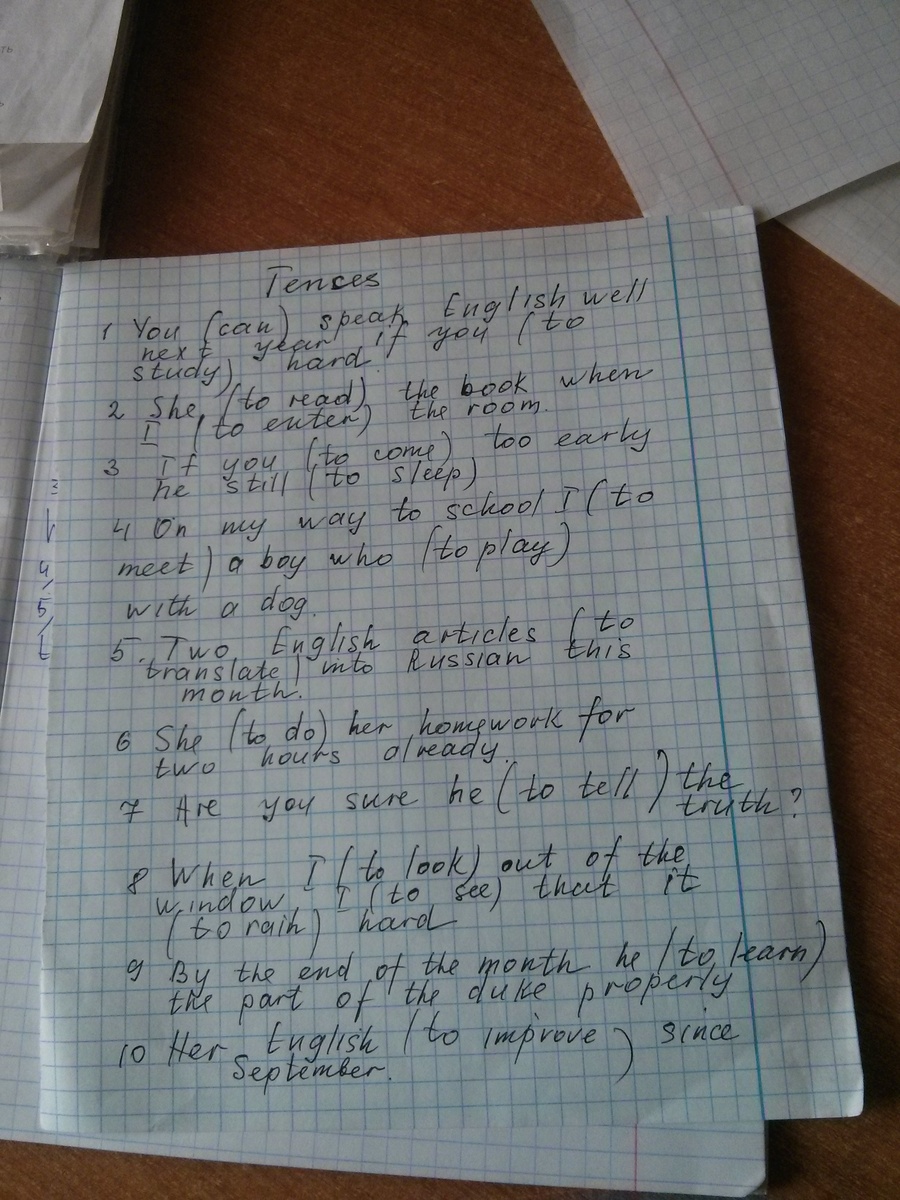 ть
Tences
1 You (can) speak English well
next year if you (to
study) hard.
2 She (to read) the book when
I (to enter) the room.
3 If you (to come) too early
he still (to sleep)
4 On my way to school I (to
meet) a boy who (to play)
with a dog.
5. Two English articles (to
translate) into Russian this
month.
6 She (to do) her homework for
two hours already.
7 Are you sure he (to tell) the
truth?
8 When I (to look) out of the
window I (to see) that it
(to rain) hard
9 By the end of the month he (to learn)
the part of the duke properly
10 Her English (to improve) since
September.
4/
5/